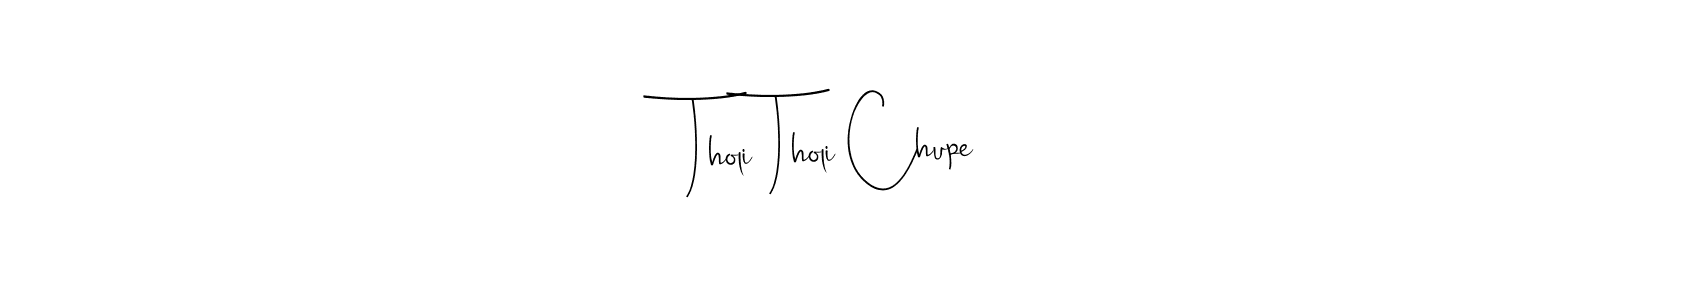 Tholi Tholi Chupe